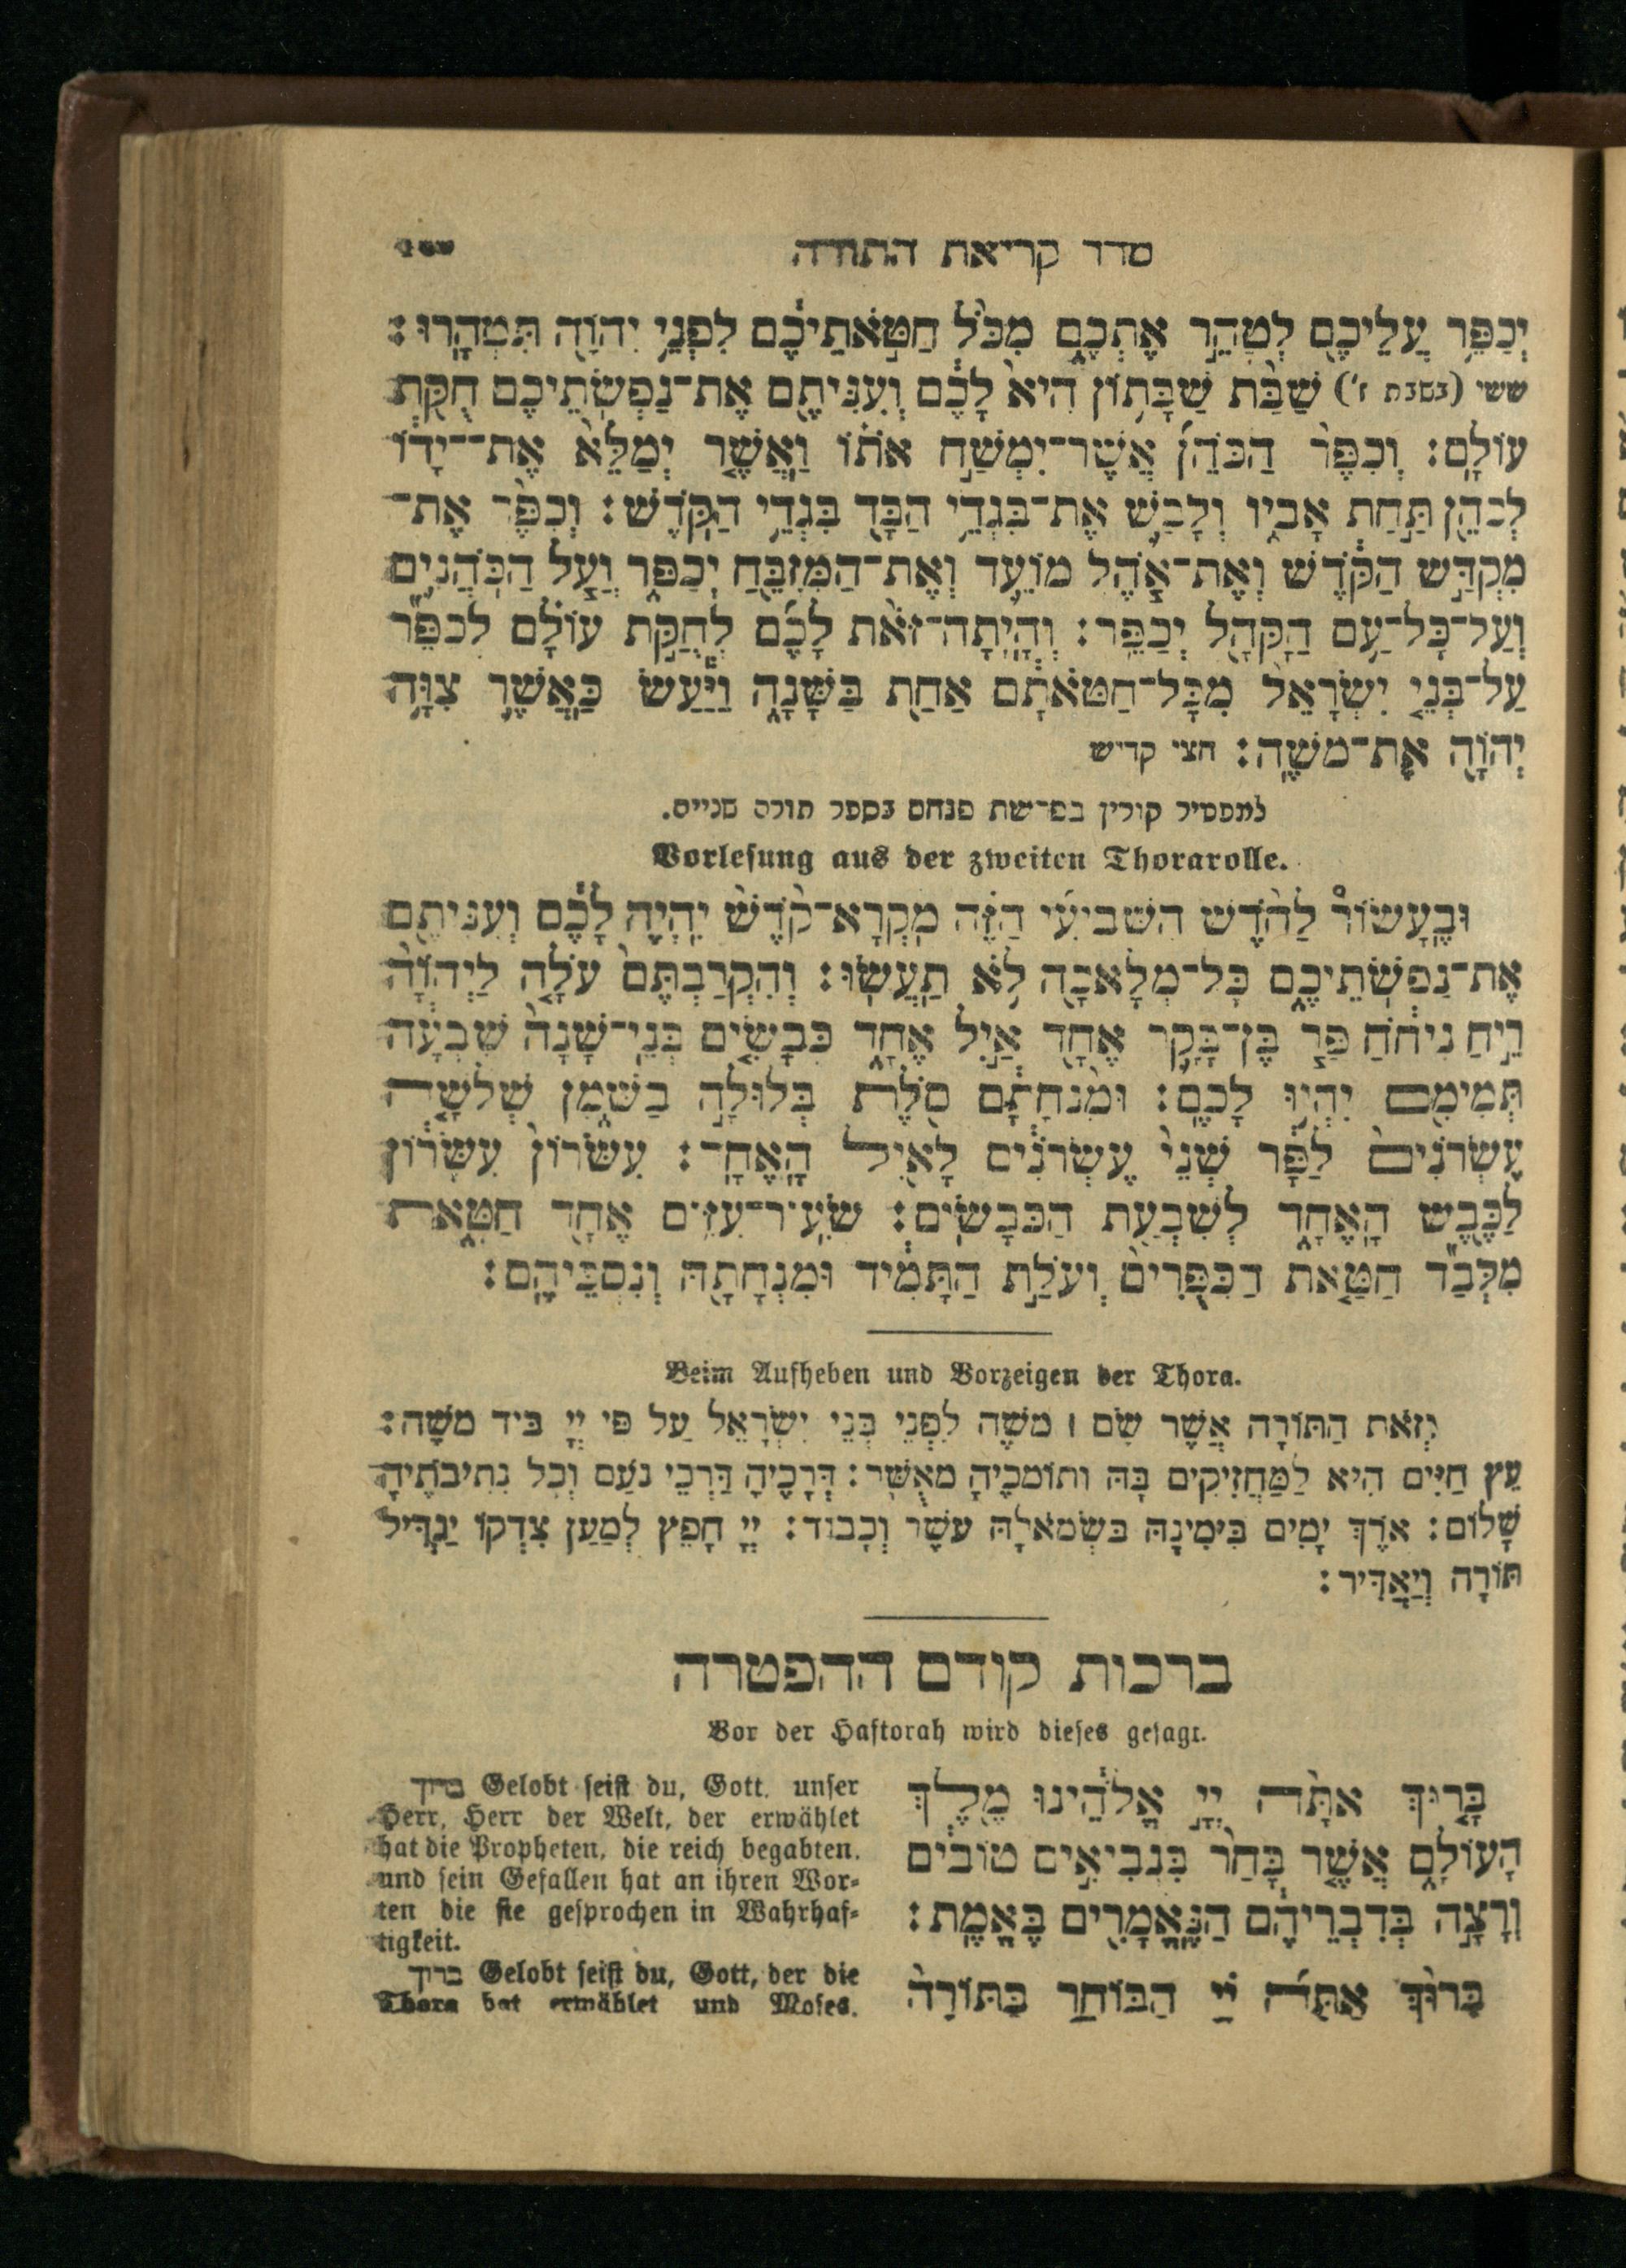 סדר קריאת התורה
יְכַפֵּ֥ר עֲלֵיכֶ֖ם לְטַהֵ֣ר אֶתְכֶ֑ם מִכֹּל֙ חַטֹּ֣אתֵיכֶ֔ם לִפְנֵ֥י יְהוָֹ֖ה תִּטְהָֽרוּ׃
ששי (בשבת ז׳) שַׁבַּ֨ת שַׁבָּת֥וֹן הִיא֙ לָכֶ֔ם וְעִנִּיתֶ֖ם אֶת־נַפְשֹֽׁתֵיכֶ֑ם חֻקַּ֖ת
עוֹלָֽם׃ וְכִפֶּ֨ר הַכֹּהֵ֜ן אֲשֶׁר־יִמְשַׁ֣ח אֹת֗וֹ וַאֲשֶׁ֤ר יְמַלֵּא֙ אֶת־יָד֔וֹ
לְכַהֵ֖ן תַּ֣חַת אָבִ֑יו וְלָבַ֛שׁ אֶת־בִּגְדֵ֥י הַבָּ֖ד בִּגְדֵ֥י הַקֹּֽדֶשׁ׃ וְכִפֶּ֞ר אֶת־
מִקְדַּ֣שׁ הַקֹּ֗דֶשׁ וְאֶת־אֹ֧הֶל מוֹעֵ֛ד וְאֶת־הַמִּזְבֵּ֖חַ יְכַפֵּ֑ר וְעַ֧ל הַכֹּֽהֲנִ֛ים
וְעַל־כָּל־עַ֥ם הַקָּהָ֖ל יְכַפֵּֽר׃ וְהָֽיְתָה־זֹּ֨את לָכֶ֜ם לְחֻקַּ֣ת עוֹלָ֗ם לְכַפֵּ֞ר
עַל־בְּנֵ֤י יִשְׂרָאֵל֙ מִכָּל־חַטֹּאתָ֔ם אַחַ֖ת בַּשָּׁנָ֑ה וַיַּ֕עַשׂ כַּֽאֲשֶׁ֛ר צִוָּ֥ה
יְהוָֹ֖ה אֶת־מֹשֶֽׁה׃ חצי קדיש
למפטיר קורין בפרשת פנחם בספר תורה שנייה.
Vorlesung aus der zweiten Thorarolle.
וּבֶֽעָשׂוֹר֩ לַחֹ֨דֶשׁ הַשְּׁבִיעִ֜י הַזֶּ֗ה מִֽקְרָא־קֹ֨דֶשׁ֙ יִֽהְיֶ֣ה לָכֶ֔ם וְעִנִּיתֶ֖ם
אֶת־נַפְשֹֽׁתֵיכֶ֑ם כָּל־מְלָאכָ֖ה לֹ֥א תַֽעֲשֽׂוּ׃ וְהִקְרַבְתֶּ֨ם עֹלָ֤ה לַֽיהוָֹה֙
רֵ֣יחַ נִיחֹ֔חַ פַּ֧ר בֶּן־בָּקָ֛ר אֶחָ֖ד אַ֣יִל אֶחָ֑ד כְּבָשִׂ֤ים בְּנֵֽי־שָׁנָה֙ שִׁבְעָ֔ה
תְּמִימִ֖ם יִֽהְי֥וּ לָכֶֽם׃ וּמִ֨נְחָתָ֔ם סֹ֖לֶת בְּלוּלָ֣ה בַשָּׁ֑מֶן שְׁלֹשָׁ֤ה
עֶשְׂרֹנִים֙ לַפָּ֔ר שְׁנֵי֙ עֶשְׂרֹנִ֔ים לָאַ֖יִל הָֽאֶחָֽד׃ עִשָּׂרוֹן֙ עִשָּׂר֔וֹן
לַכֶּ֖בֶשׂ הָֽאֶחָ֑ד לְשִׁבְעַ֖ת הַכְּבָשִֽׂים׃ שְׂעִיר־עִזִּ֥ים אֶחָ֖ד חַטָּ֑את
מִלְּבַ֞ד חַטַּ֤את הַכִּפֻּרִים֙ וְעֹלַ֣ת הַתָּמִ֔יד וּמִנְחָתָ֖הּ וְנִסְכֵּיהֶֽם׃
Beim Aufheben und Vorzeigen der Thora.
וְזֹאת הַתּוֹרָה אֲשֶׁר שָׂם ׀ מֹשֶׁה לִפְנֵי בְּנֵי יִשְׂרָאֵל עַל פִּי יְיָ בְּיַד מֹשֶׁה׃
עֵץ חַיִּים הִיא לַמַּחֲזִיקִים בָּהּ וְתוֹמְכֶיהָ מְאֻשָּׁר׃ דְּרָכֶיהָ דַּרְכֵי נֹעַם וְכָל נְתִיבוֹתֶיהָ
שָׁלוֹם׃ אֹרֶךְ יָמִים בִּימִינָהּ בִּשְׂמֹאלָהּ עֹשֶׁר וְכָבוֹד׃ יְיָ חָפֵץ לְמַעַן צִדְקוֹ יַגְדִּיל
תּוֹרָה וְיַאְדִּיר׃
ברכות קודם ההפטרה
Vor der Haftorah wird dieses gesagt.
בָּר֨וּךְ אַתָּ֤ה יְיָ֙ אֱלֹהֵ֔ינוּ מֶ֖לֶךְ
הָעוֹלָ֑ם אֲשֶׁ֤ר בָּחַר֙ בִּנְבִיאִ֣ים טוֹבִ֔ים
וְרָצָ֥ה בְדִבְרֵיהֶ֖ם הַנֶּֽאֱמָרִ֣ים בֶּֽאֱמֶ֑ת׃
בָּר֨וּךְ אַתָּ֜ה יְיָ֗ הַבּוֹחֵ֤ר בַּתּוֹרָה֙
ברוך Gelobt seist du, Gott, unser
Herr, Herr der Welt, der erwählet
hat die Propheten, die reich begabten,
und sein Gefallen hat an ihren Wor-
ten die sie gesprochen in Wahrhaf-
tigkeit.
ברוך Gelobt seist du, Gott, der die
Thora hat erwählet und Moses.